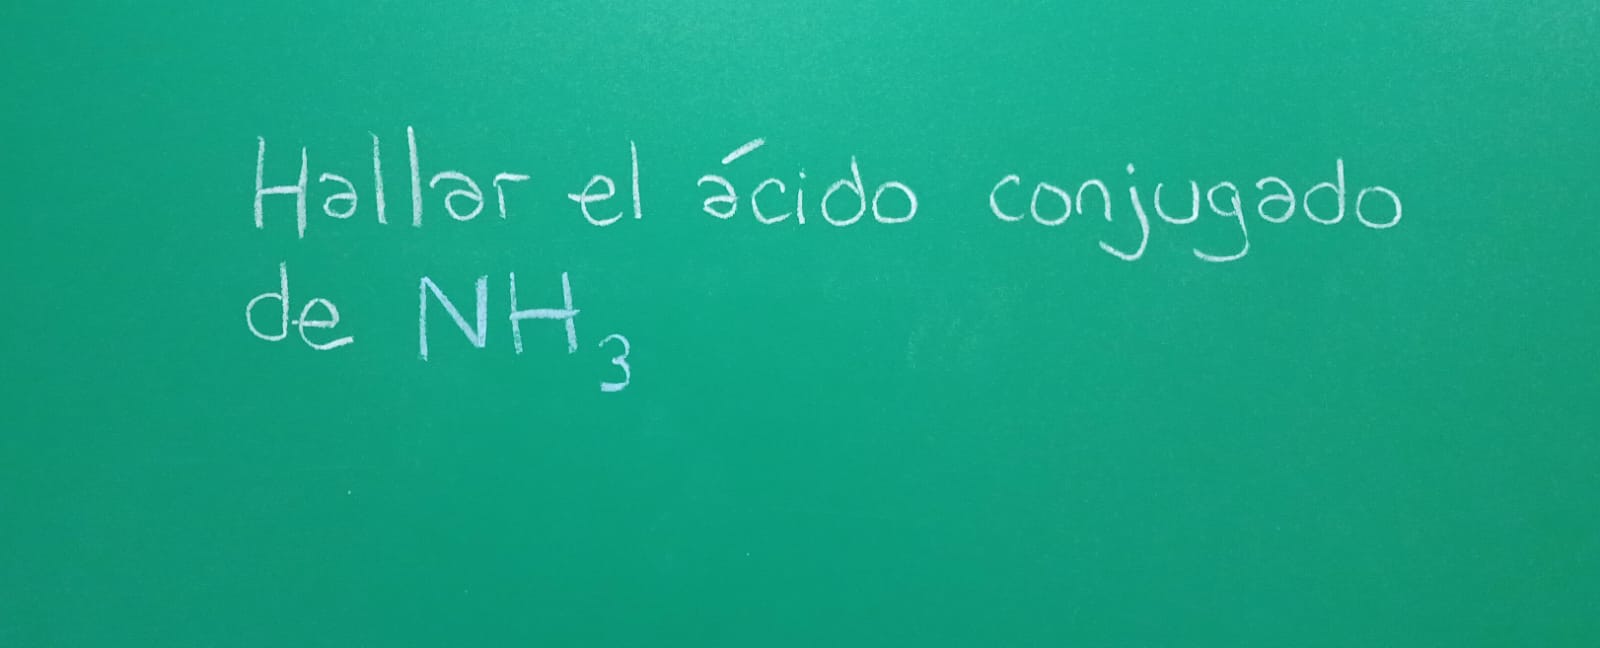 Hallar el ácido conjugado
de NH₃